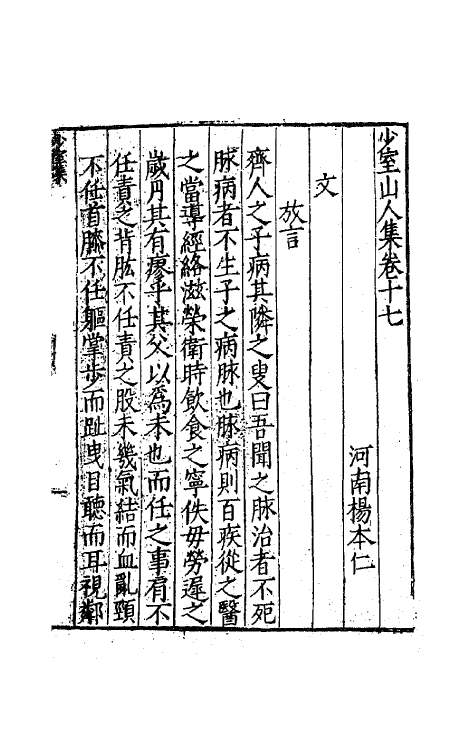 少室山人集卷十七
河南楊本仁
文
放言
齊人之子病其隣之叟曰吾聞之脉治者不死
脉病者不生子之病脉也脉病則百疾從之醫
之當導經絡滋榮衛時飲食之寧佚毋勞遲之
歲月其有瘳乎其父以為未也而任之事肩不
任責之背肱不任責之股未幾氣結而血亂頸
不任首臟不任軀掌步而趾曳目聽而耳視鄰